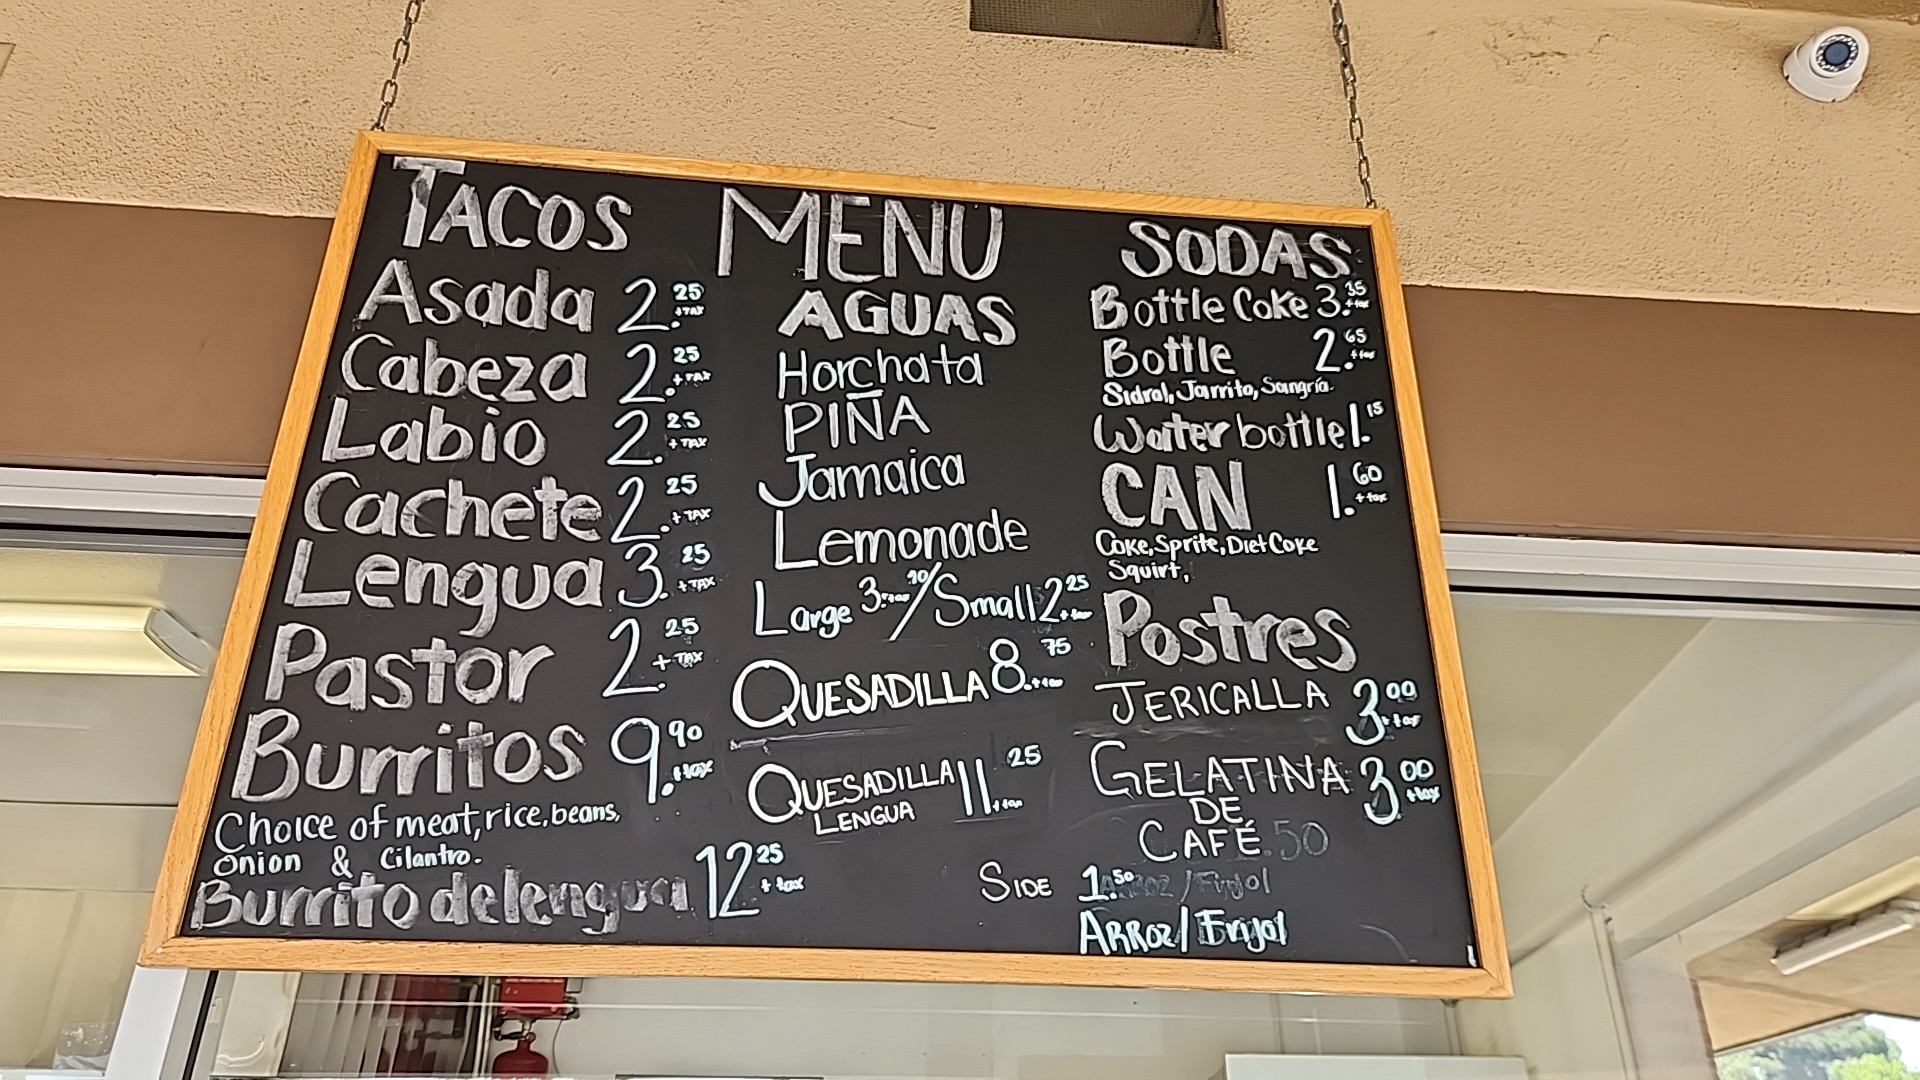 TACOS
Asada 2.25 +TAX
Cabeza 2.25 +TAX
Labio 2.25 +TAX
Cachete 2.25 +TAX
Lengua 3.25 +TAX
Pastor 2.25 +TAX
Burritos 9.90 +tax
Choice of meat, rice, beans,
onion & Cilantro.
Burrito de lengua 12.25 +tax
MENU
AGUAS
Horchata
PIÑA
Jamaica
Lemonade
Large 3.90 +tax / Small 2.25 +tax
QUESADILLA 8.75 +tax
QUESADILLA 11.25 +tax
LENGUA
SODAS
Bottle Coke 3.35 +tax
Bottle 2.65 +tax
Sidral, Jarrito, Sangría.
Water bottle 1.15
CAN 1.60 +tax
Coke, Sprite, Diet Coke
Squirt,
Postres
JERICALLA 3.00 +tax
GELATINA 3.00 +tax
DE
CAFÉ
SIDE 1.50
ARROZ / Frijol